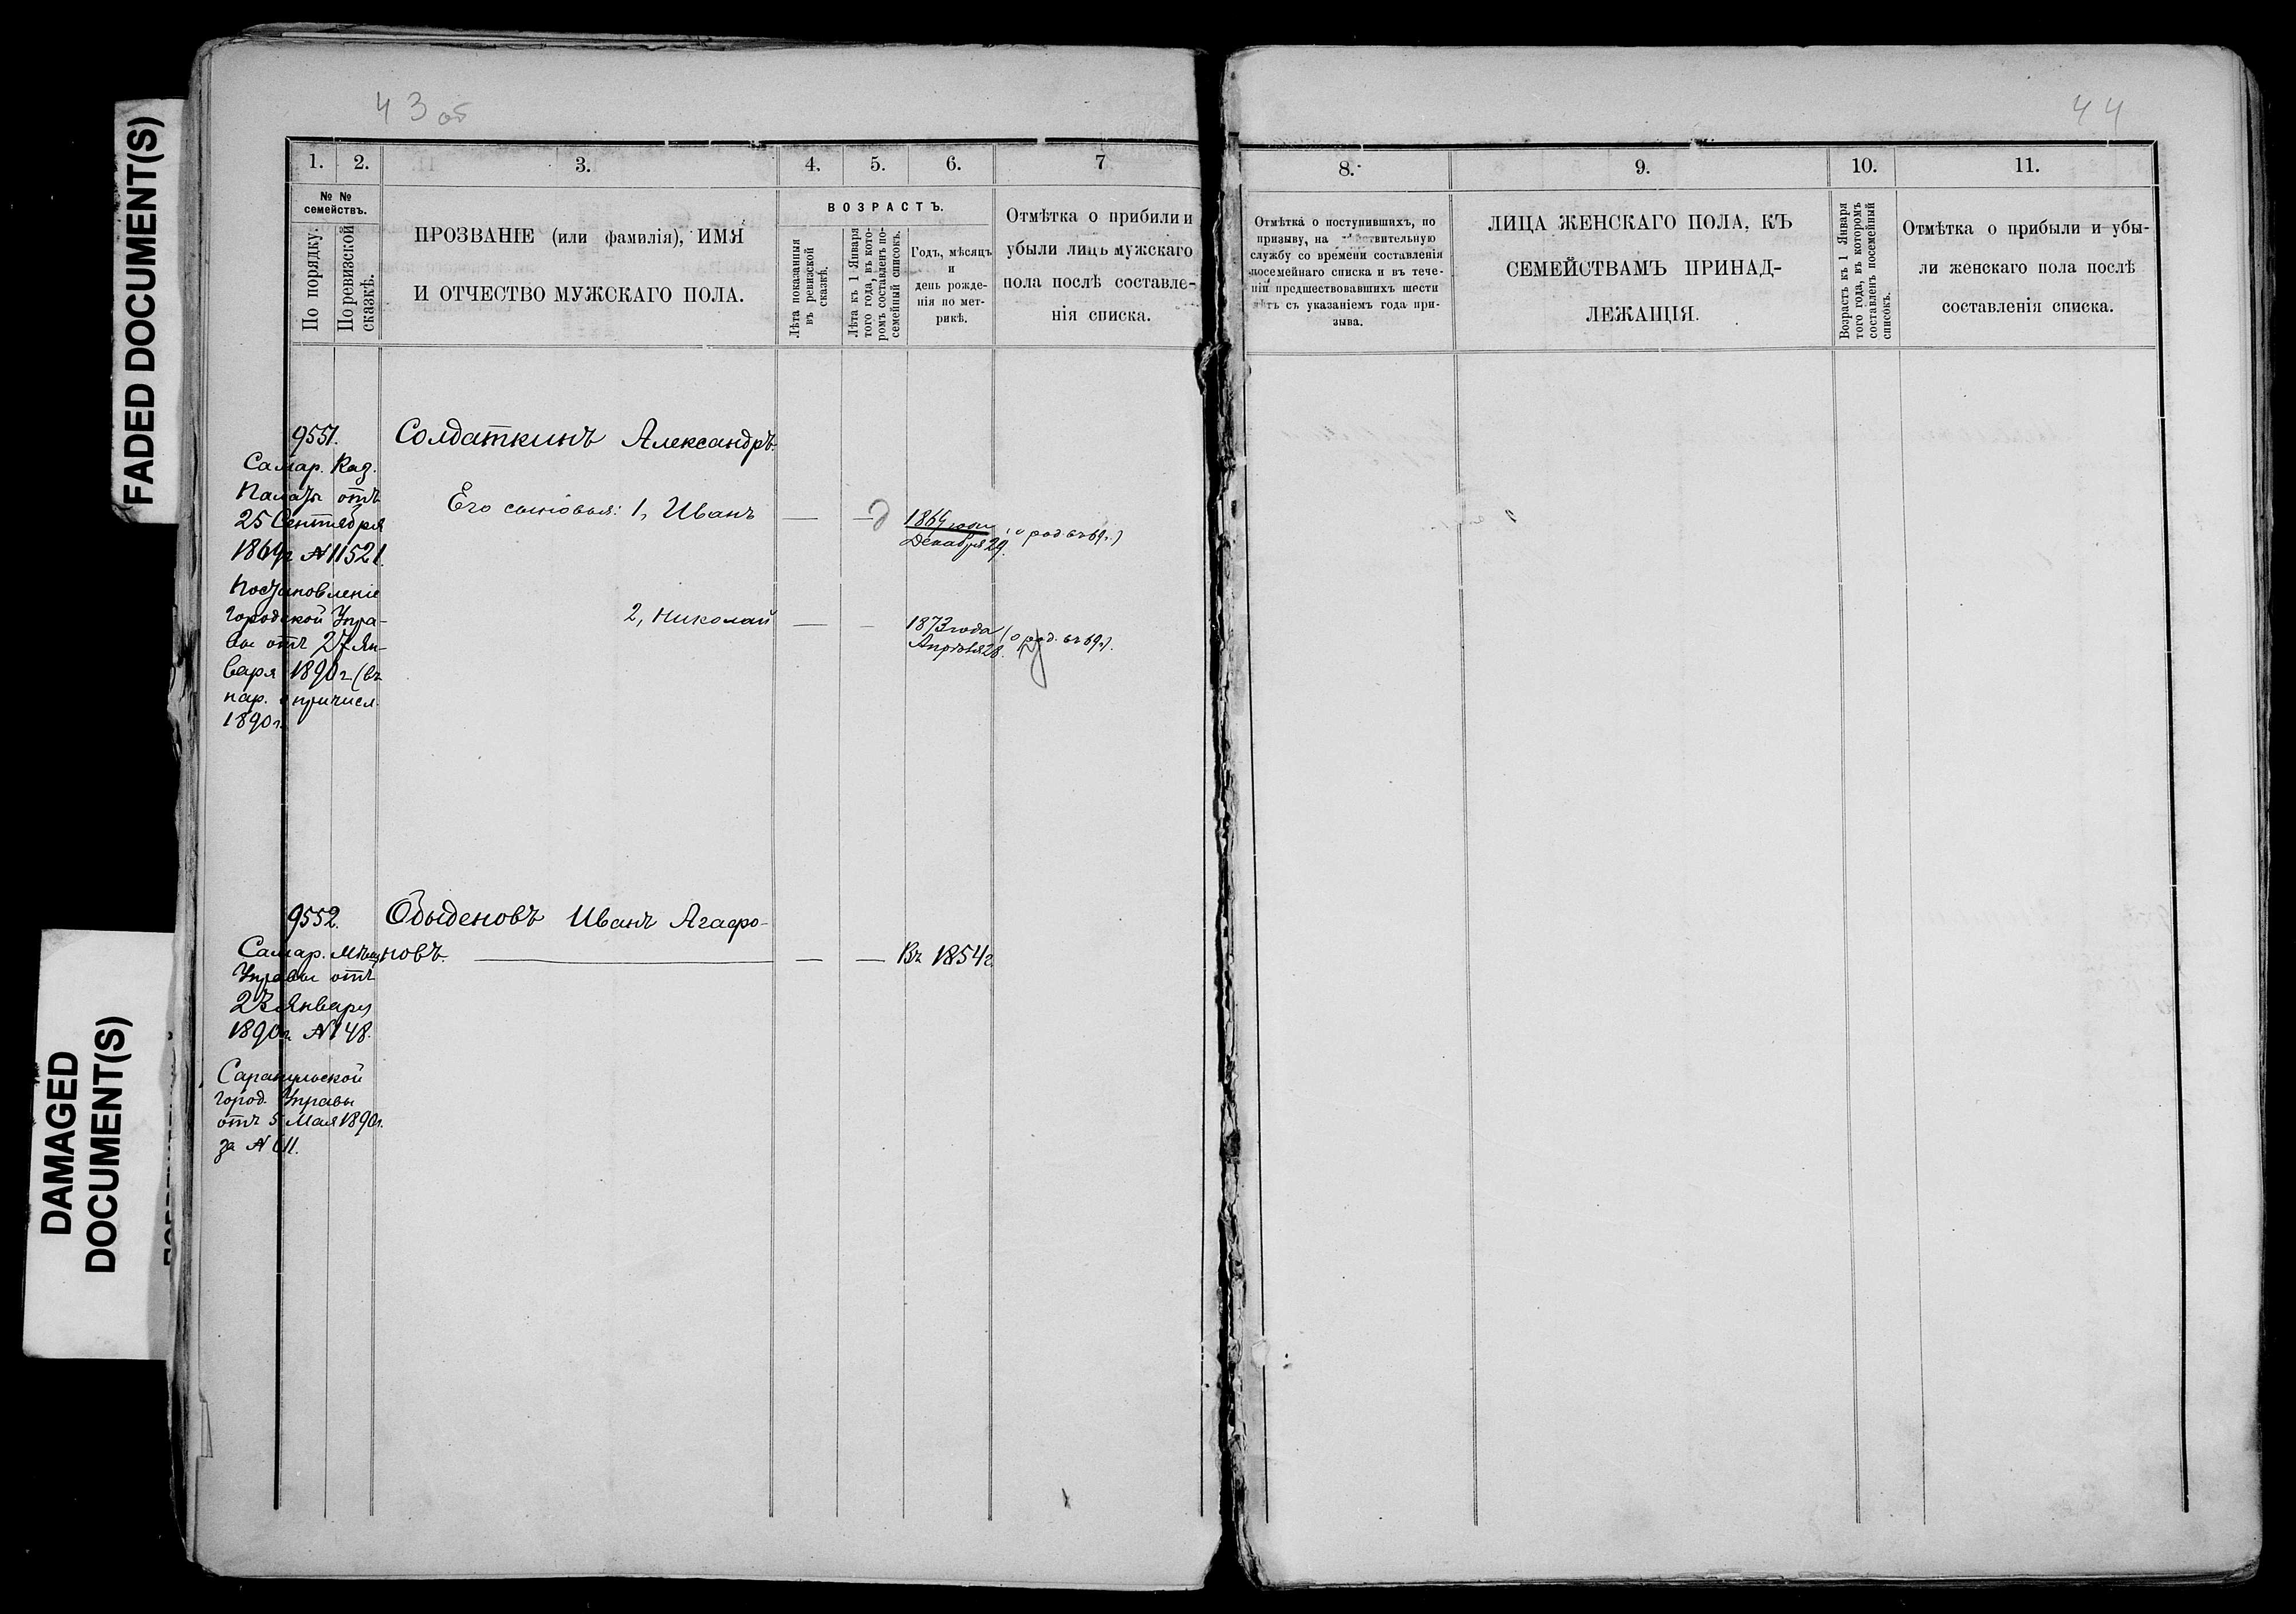 FADED DOCUMENT(S)
DAMAGED
DOCUMENT(S)
43 об
1. 2. 3. 4. 5. 6. 7
№ №
семействъ.
По порядку.
По ревизской
сказкѣ.
ПРОЗВАНІЕ (или фамилія), ИМЯ
И ОТЧЕСТВО МУЖСКАГО ПОЛА.
ВОЗРАСТЪ.
Лѣта показанныя
въ ревизской
сказкѣ.
Лѣта къ 1 Января
того года, въ кото-
ромъ составленъ по-
семейный списокъ.
Годъ, мѣсяцъ
и
день рожде-
нія по мет-
рикѣ.
Отмѣтка о прибыли и
убыли лицъ мужскаго
пола послѣ составле-
нія списка.
9551. Солдаткинъ Александръ.
Самар. Каз.
Палаты отъ
25 Сентября
1869г №11521.
Его сыновья: 1, Иванъ — —
1869 года
Декабря 29. (о род. въ 69.)
Постановленіе
Городской Упра-
вы отъ 27 Ян-
варя 1890 г (въ
пар. о причисл.
1890г.
2, Николай — —
1873 года
Апрѣля 28. (о род. въ 69.).
9552. Обыденовъ Иванъ Агафо-
новъ. — — Въ 1854г
Самар. Мѣщ.
Управы отъ
23 Января
1890г. №148.
Сарапульской
город. Управы
отъ 5 Мая 1890г.
за № 611.
44
8. 9. 10. 11.
Отмѣтка о поступившихъ, по
призыву, на дѣйствительную
службу со времени составленія
посемейнаго списка и въ тече-
ніи предшествовавшихъ шести
лѣтъ съ указаніемъ года при-
зыва.
ЛИЦА ЖЕНСКАГО ПОЛА, КЪ
СЕМЕЙСТВАМЪ ПРИНАД-
ЛЕЖАЩІЯ.
Возрастъ къ 1 Января
того года, въ которомъ
составленъ посемейный
списокъ.
Отмѣтка о прибыли и убы-
ли женскаго пола послѣ
составленія списка.